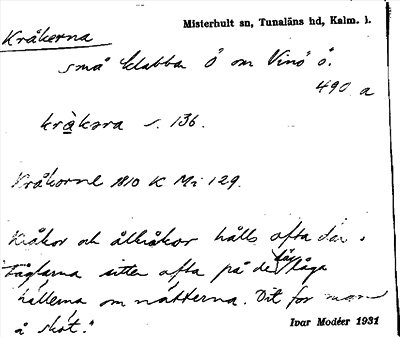 Misterhult sn, Tunaläns hd, Kalm. l.
Kråkerna
små klabba Ö om Vinö ö.
490 a
kråkəra s. 136.
Kråkorne 1810 K Mi 129.
Kråkor och ålkråkor hålls ofta där.
Fåglarna sitter ofta på de där låga
hällerna om nätterna. Dit for man
å sköt."
Ivar Modéer 1931